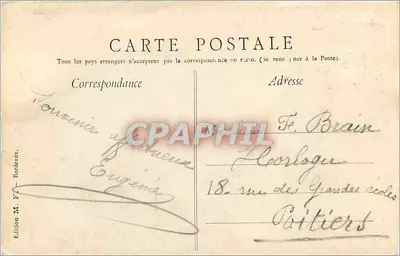 CARTE POSTALE
Tous les pays étrangers n'acceptent pas la correspondance au recto. (Se renseigner à la Poste).
Correspondance
Adresse
Souvenir affectueux
Eugénie
F. Brain
Horloger
18 - rue des Grandes écoles
Poitiers
CPAPHIL
Edition M. Bordeaux.